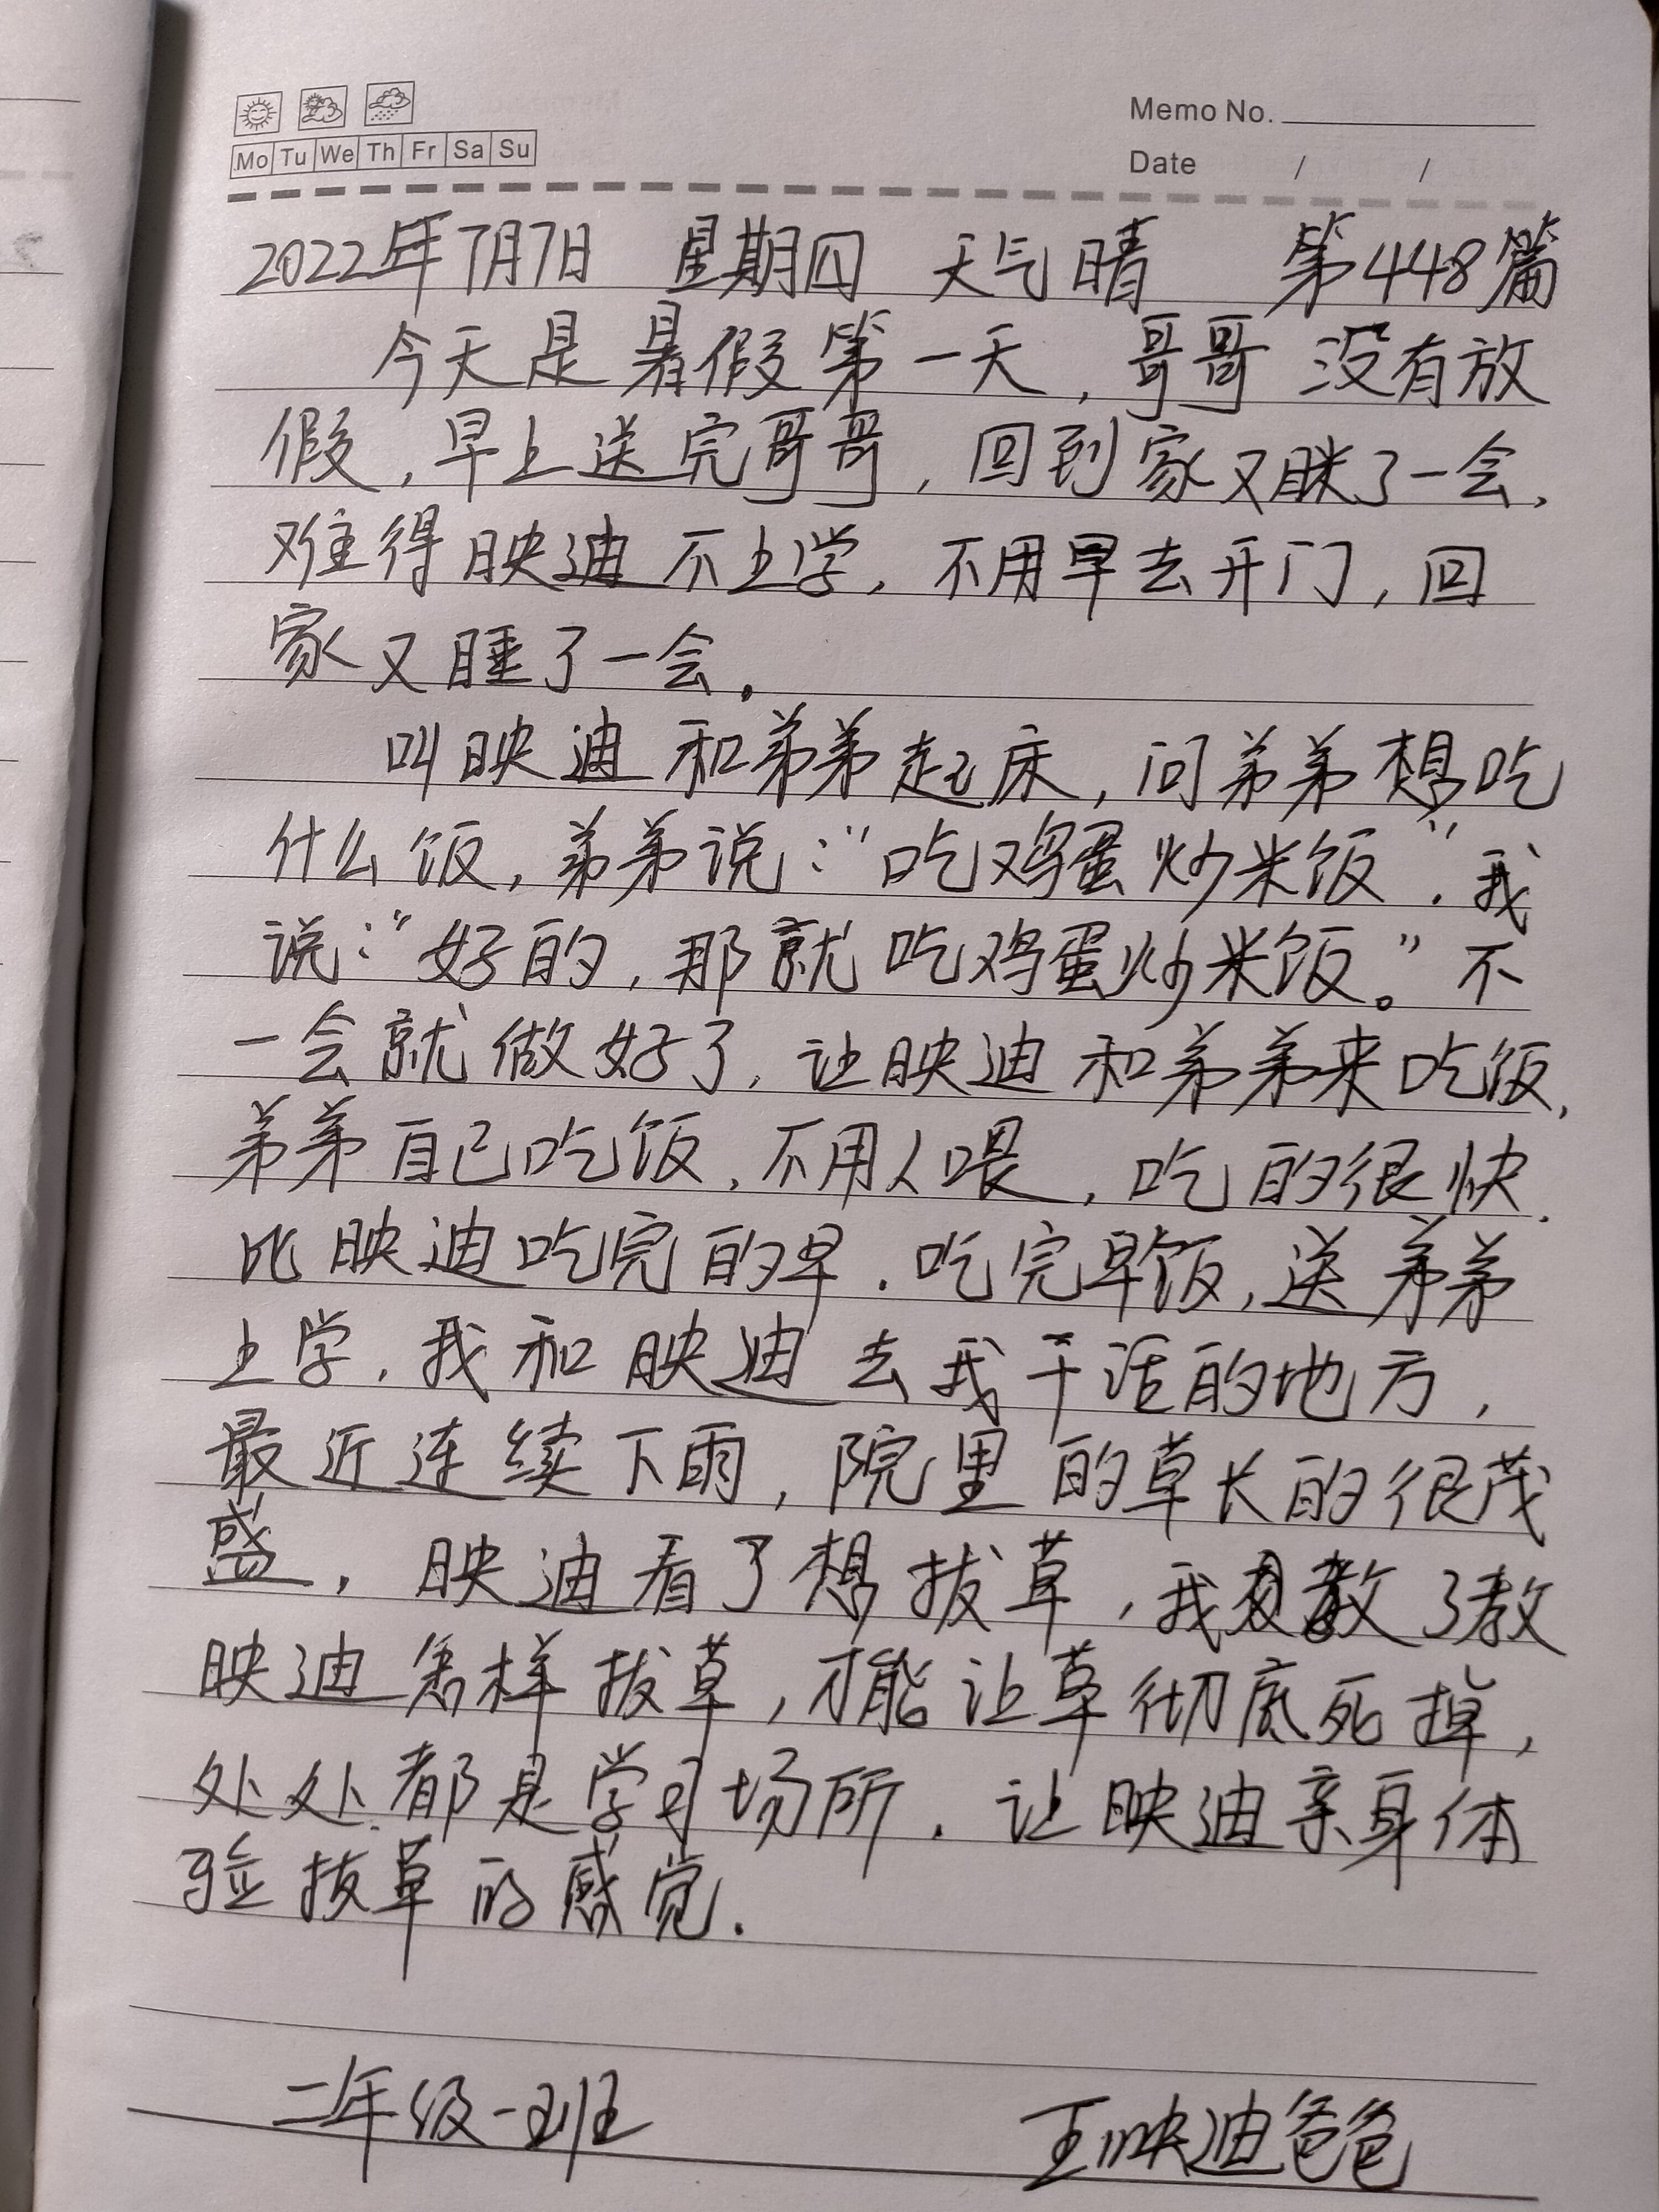 Memo No.
Mo Tu We Th Fr Sa Su
Date / /
2022年7月7日 星期四 天气晴 第448篇
今天是暑假第一天,哥哥没有放
假,早上送完哥哥,回到家又眯了一会,
难得映迪不上学,不用早去开门,回
家又睡了一会.
叫映迪和弟弟起床,问弟弟想吃
什么饭,弟弟说:“吃鸡蛋炒米饭”.我
说:“好的,那就吃鸡蛋炒米饭。”不
一会就做好了,让映迪和弟弟来吃饭,
弟弟自己吃饭,不用人喂,吃的很快.
比映迪吃完的早.吃完早饭,送弟弟
上学.我和映迪去我干活的地方,
最近连续下雨,院里的草长的很茂
盛,映迪看了想拔草,我教了教
映迪怎样拔草,才能让草彻底死掉,
处处都是学习场所.让映迪亲身体
验拔草的感觉.
二年级一班 王映迪爸爸